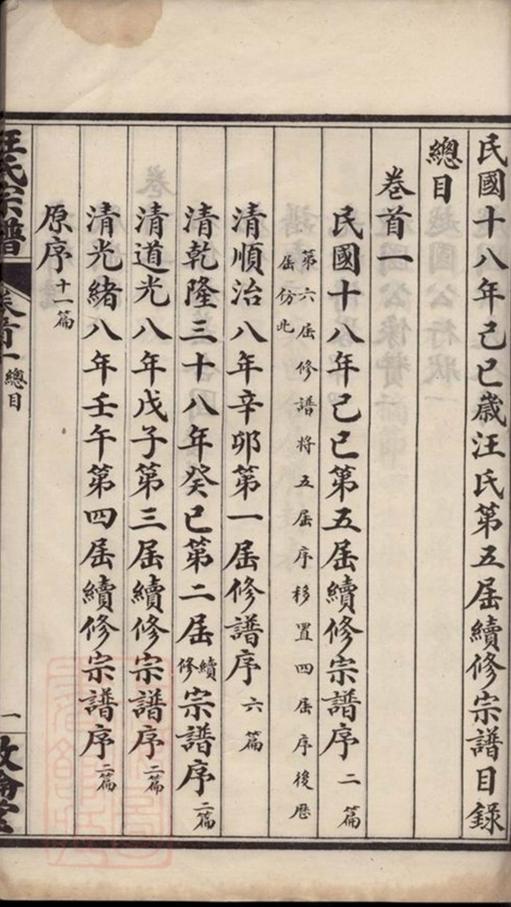 民國十八年己巳歲汪氏第五屆續修宗譜目錄
總目
卷首一
民國十八年己巳第五屆續修宗譜序二篇
第六屆修譜將五屆序移置四屆序後歷
屆仿此
清順治八年辛卯第一屆修譜序六篇
清乾隆三十八年癸巳第二屆續修宗譜序二篇
清道光八年戊子第三屆續修宗譜序二篇
清光緒八年壬午第四屆續修宗譜序二篇
原序十一篇
汪氏宗譜 卷首一總目 一